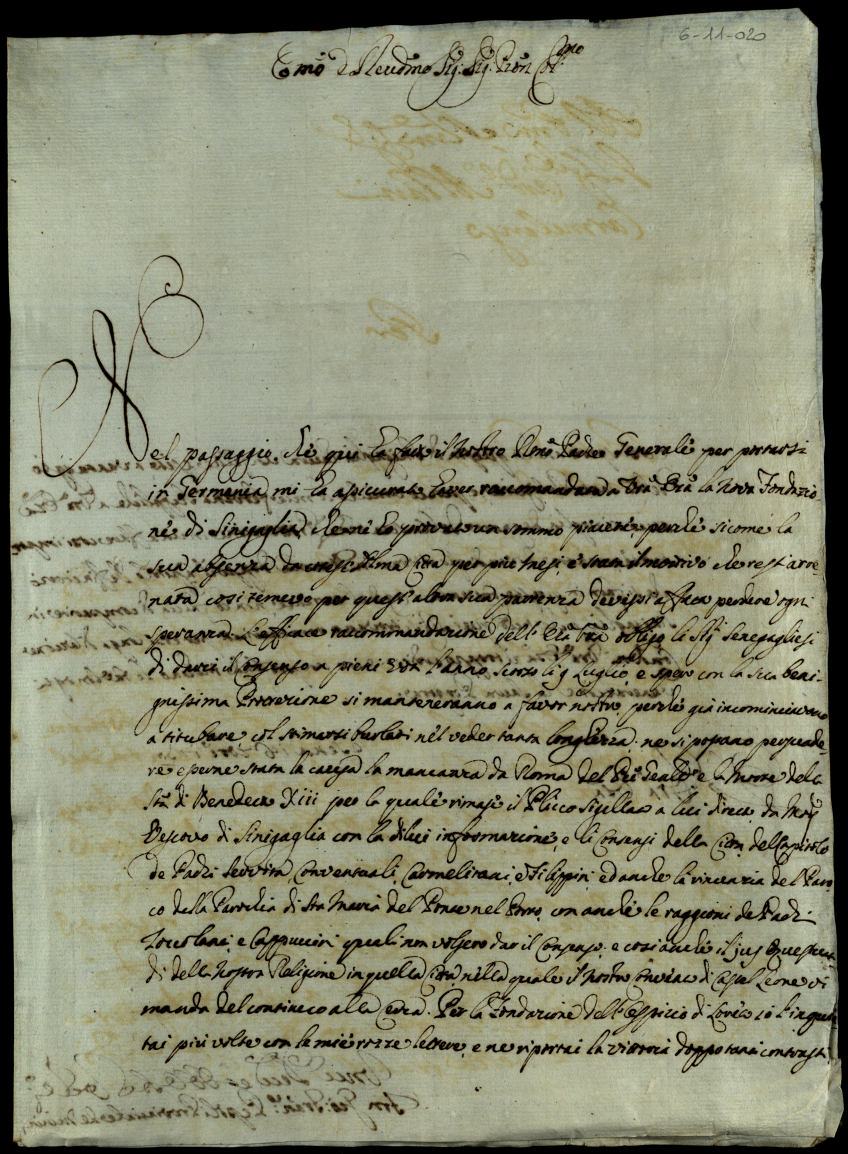 6-11-020
Emo e Revdmo Sig: Sig: Pron Col.mo
Nel passaggio che qui ha fatto il nostro Rmo Padre Generale per portarsi
in Germania mi ha assicurato haver raccomandata a Vra Em la nova Fondazio
ne di Sinigaglia che ne ho provato un sommo piacere perche sicome la
sua absenza da cotest' Alma Città per più mesi è stata il motivo che rest' arre-
nata cosi temevo per quest' altra sua partenza dovessi affatto perdere ogni
speranza. L'efficace raccommandazione dell' Em Vra obligo li Sig Senegagliesi
di darci il Consenso a pieni voti l'anno scorso li 9 Luglio, e spero con la sua beni
gnissima Protezione si manteneranno a favor nostro perche già incominciavano
a titubare col stimarsi burlati nel veder tanta longhezza. ne si possano persuade-
re esserne stata la causa la mancanza da Roma del Pre e la Morte della
Stà di Benedetto XIII per la quale rimase il Plicco sigillato a lui diretto da Mons
Vescovo di Sinigaglia con la di lui informazione, e li Consensi della Città, del Capitolo
de Padri Serviti, Conventuali, Carmelitani, e Filippini, ed anche la rinunzia del Paro-
co della Parochia di Sta Maria del Ponte nel Porto, con anche le raggioni de Padri
Zoccolanti, e Cappuccini quali non volsero dar il Consenso, e cosi anche il jus questuan-
di della Nostra Religione in quella città nella quale il nostro Convento di Castel Leone vi
manda del continuo alla cerca. Per la Fondazione dell' Ospizio di Loreto io l'inquie-
tai più volte con le mie rozze lettere, e ne riportai la vittoria doppo tanti contrasti